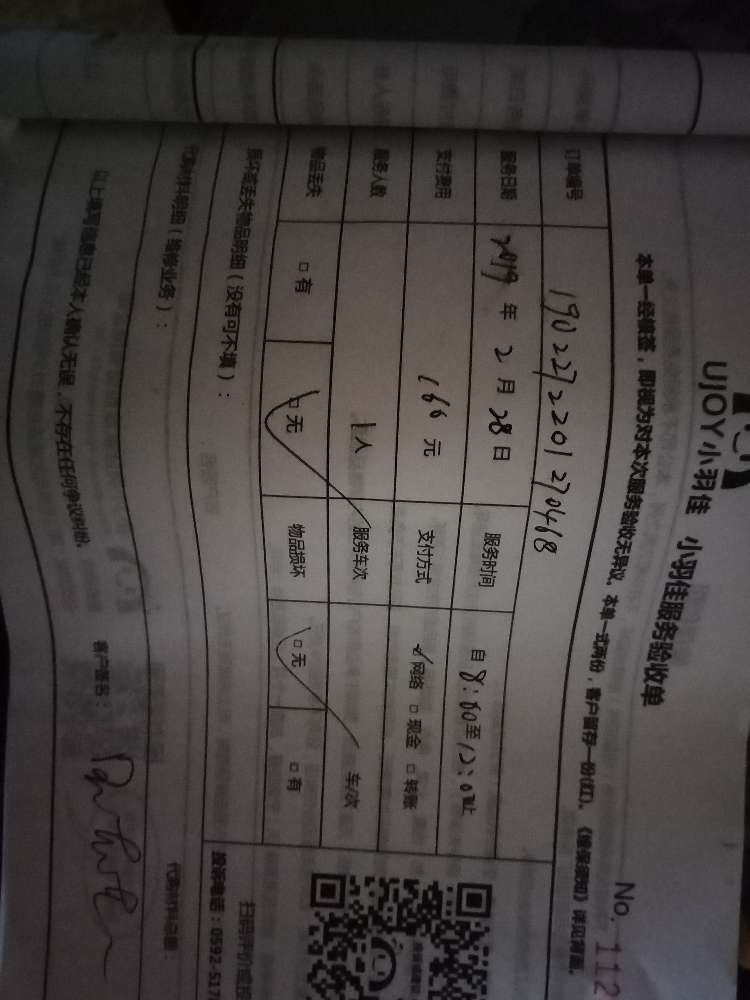 UJOY小羽佳 小羽佳服务验收单
No. 112
本单一经填签，即视为对本次服务验收无异议。本单一式两份，客户留存一份(红)。《维保须知》详见背面。
订单编号 190227220127 0468
服务日期 2019 年 2 月 28 日 服务时间 自 8:00 至 12:0 止
支付费用 166 元 支付方式 ☑网络 □现金 □转账
服务人数 1人 服务车次 车/次
物品丢失 □有 □无 物品损坏 □无 □有
损坏或丢失物品明细（没有可不填）：
扫码评价或投
投诉电话：0592-517
代购材料明细（维修业务）：
代购材料总额：
以上填写信息已经本人确认无误，不存在任何争议纠纷。
客户签名：